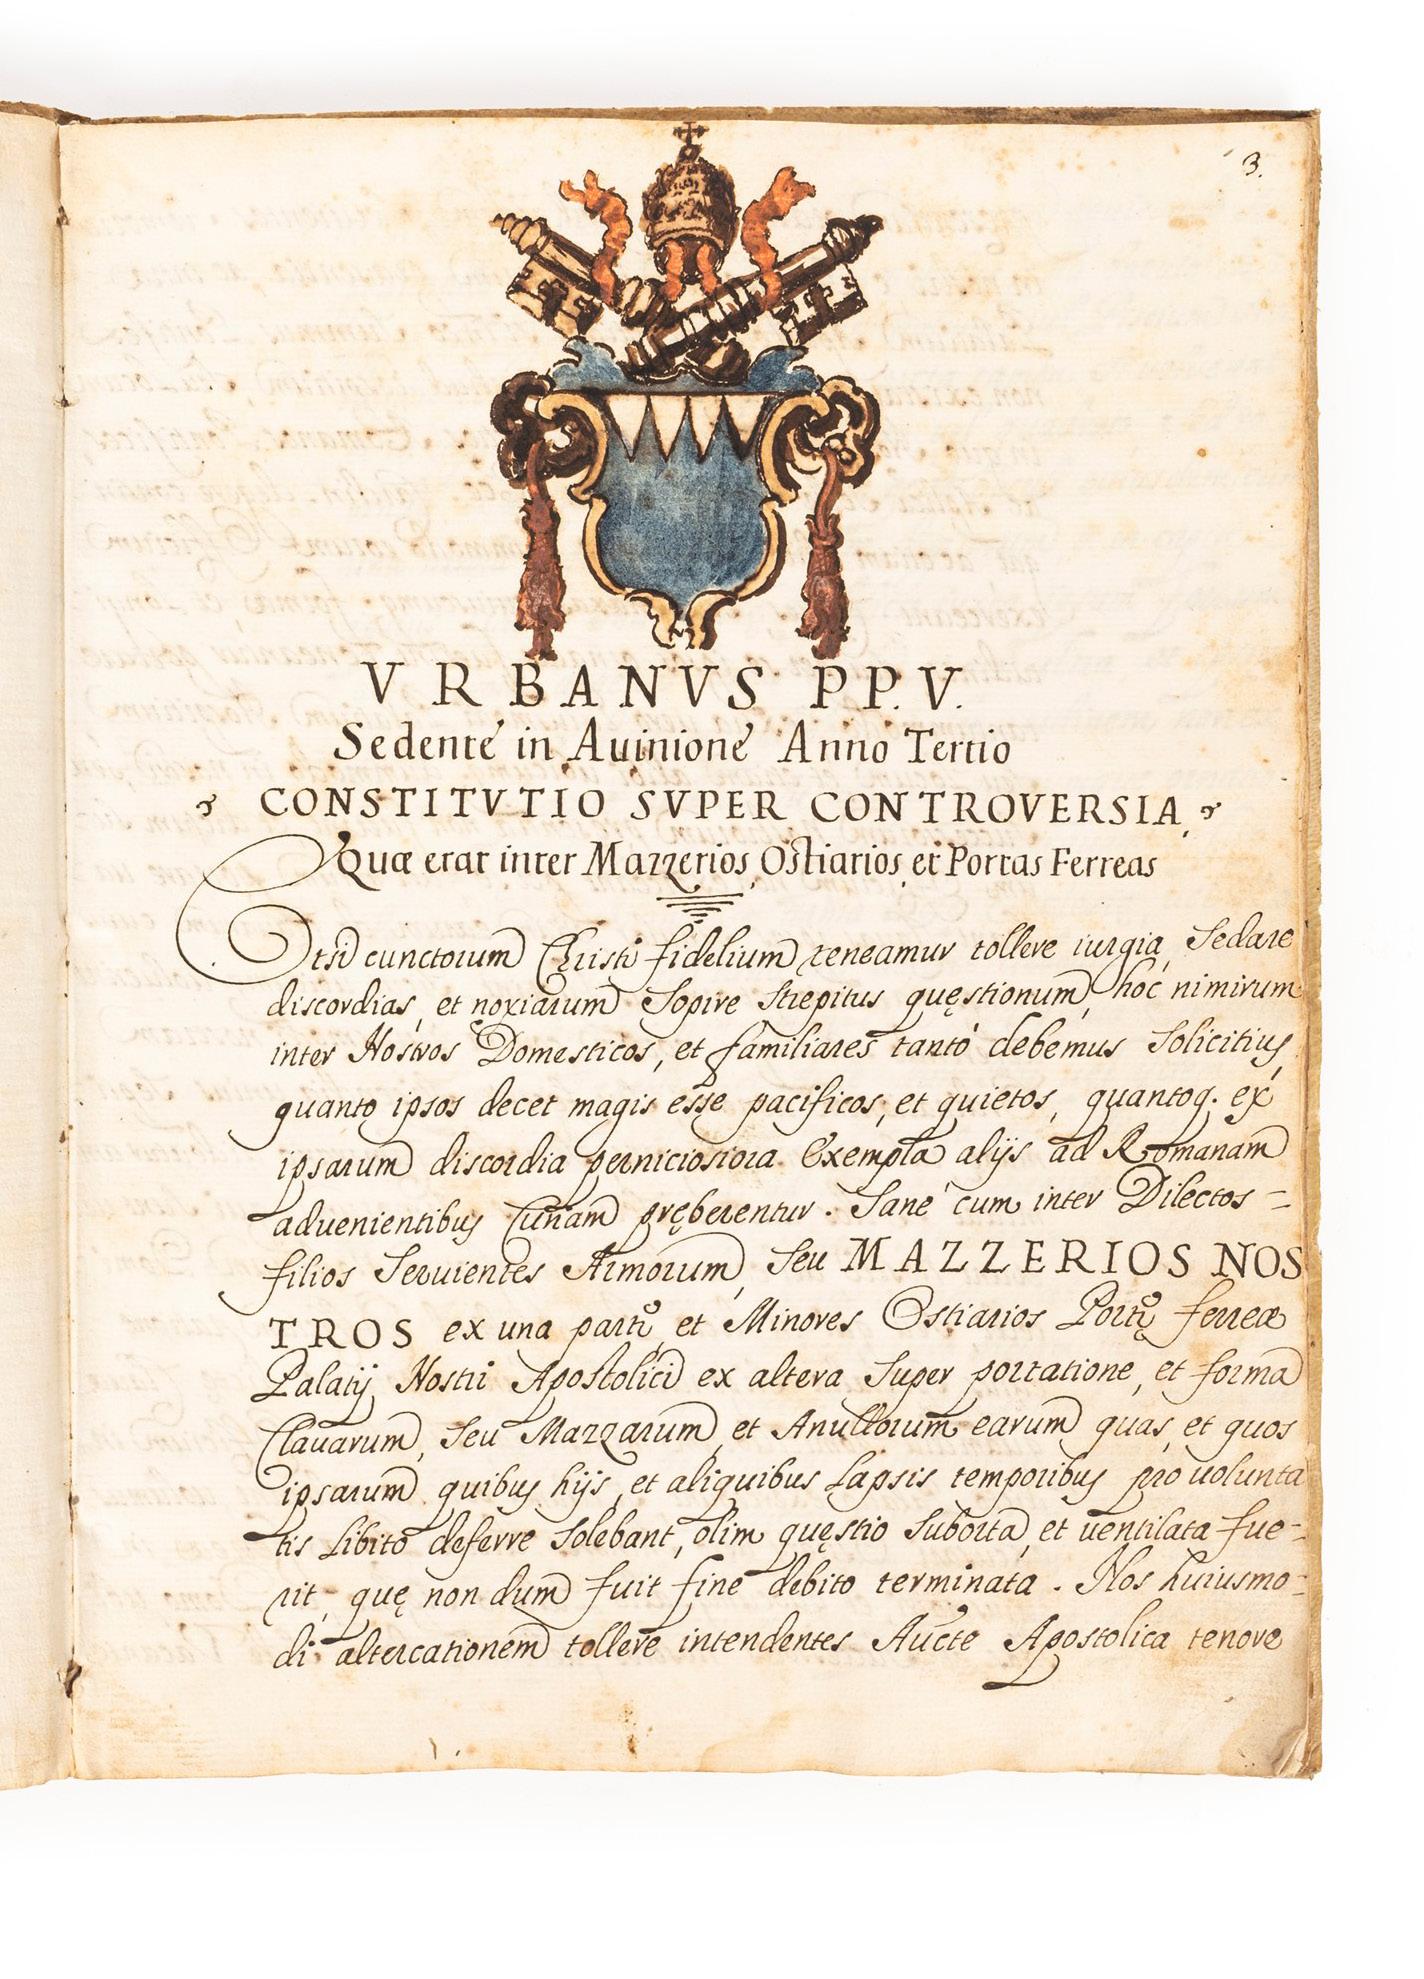 3.
VRBANVS PP. V.
Sedente in Auinione Anno Tertio
CONSTITVTIO SVPER CONTROVERSIA,
Quæ erat inter Mazzerios, Ostiarios, et Portas Ferreas
Etsi cunctorum Christi fidelium teneamur tollere iurgia, Sedare
discordias, et noxiarum Sopire Strepitus quęstionum, hoc nimirum
inter Nostros Domesticos, et familiares tantò debemus Solicitius,
quanto ipsos decet magis esse pacificos, et quietos, quantoq. ex
ipsarum discordia perniciosiora Exempla alijs ad Romanam
aduenientibus Curiam pręberentur. Sanè cum inter Dilectos =
filios Seruientes Armorum, Seu MAZZERIOS NOS
TROS ex una parte, et Minores Ostiarios Portę ferreæ
Palatij Nostri Apostolici ex altera Super portatione, et forma
Clauarum, Seu Mazzarum, et Anullorum earum quas, et quos
ipsarum quibus hijs, et aliquibus Lapsis temporibus pro uolunta
tis Libito deferre Solebant, olim quęstio Suborta, et uentilata fue=
rit, quę non dum fuit fine debito terminata. Nos huiusmo=
di altercationem tollere intendentes Aucte Apostolica tenore